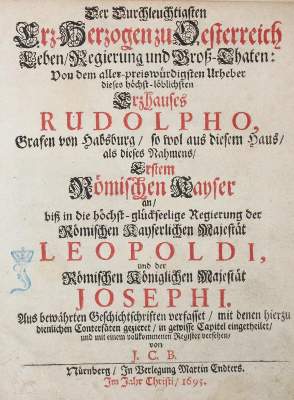 Der Durchleuchtigsten
Ertz-Hertzogen zu Oesterreich
Leben/ Regierung und Groß-Thaten:
Von dem aller-preiswürdigsten Urheber
dieses höchst-löblichsten
Ertzhauses
RUDOLPHO,
Grafen von Habsburg/ so wol aus diesem Haus/
als dieses Nahmens/
Erstem
Römischen Kayser
an/
biß in die höchst-glückseelige Regierung der
Römischen Kayserlichen Majestät
LEOPOLDI,
und der
Römischen Königlichen Majestät
JOSEPHI.
Aus bewährten Geschichtschriften verfasset/ mit denen hierzu
dienlichen Conterfäten gezieret/ in gewisse Capitel eingetheilet/
und mit einem vollkommenen Register versehen/
von
J. C. B.
Nürnberg/ In Verlegung Martin Endters.
Im Jahr Christi/ 1695.